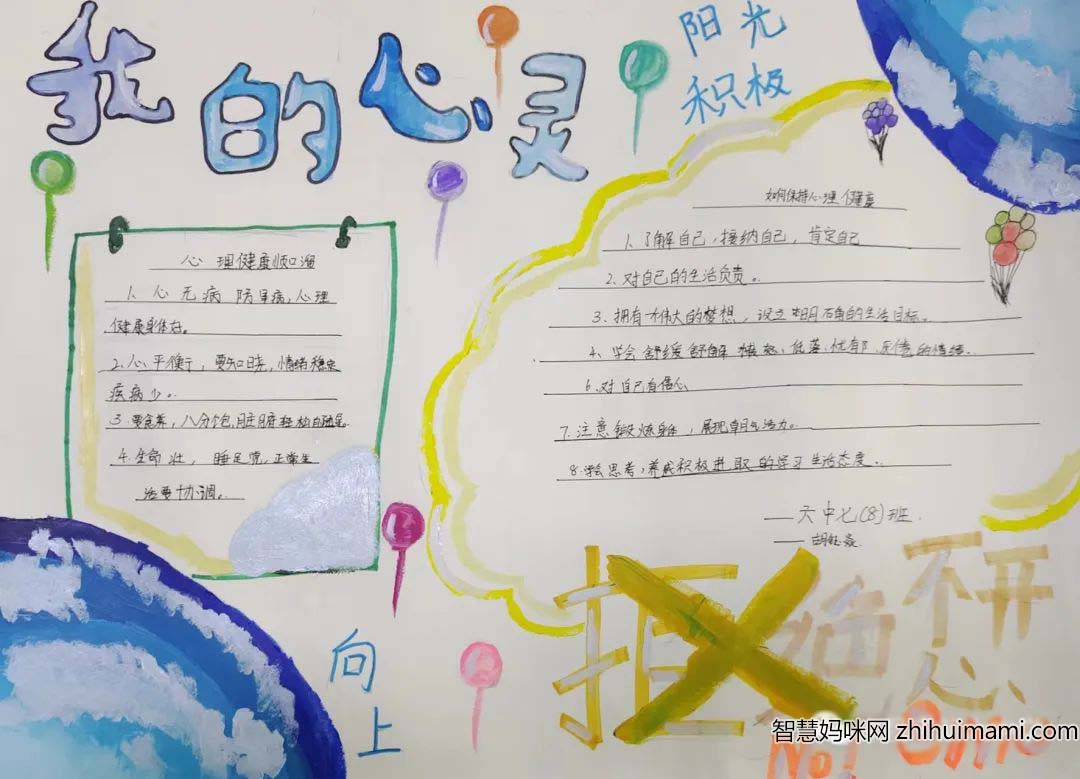 我的心灵
阳光
积极
心理健康顺口溜
1、心无病 防早病,心理
健康身体好。
2、心平衡,要知晓,情绪稳定
疾病少。
3、要食素,八分饱,脏腑轻松自疏足。
4、生命壮, 睡足觉,正常生
活要协调。
如何保持心理健康
1、了解自己,接纳自己,肯定自己
2、对自己的生活负责。
3、拥有一个伟大的梦想,设立明确的生活目标。
4、学会舒缓 舒解 愤怒,低落,忧郁,的情绪。
6、对自己有信心
7、注意锻炼身体,展现朝气活力。
8、学会思考,养成积极进取的学习生活态度。
——六中七(8)班
——胡钰
向
上
拒绝不开心
No!
智慧妈咪网 zhihuimami.com